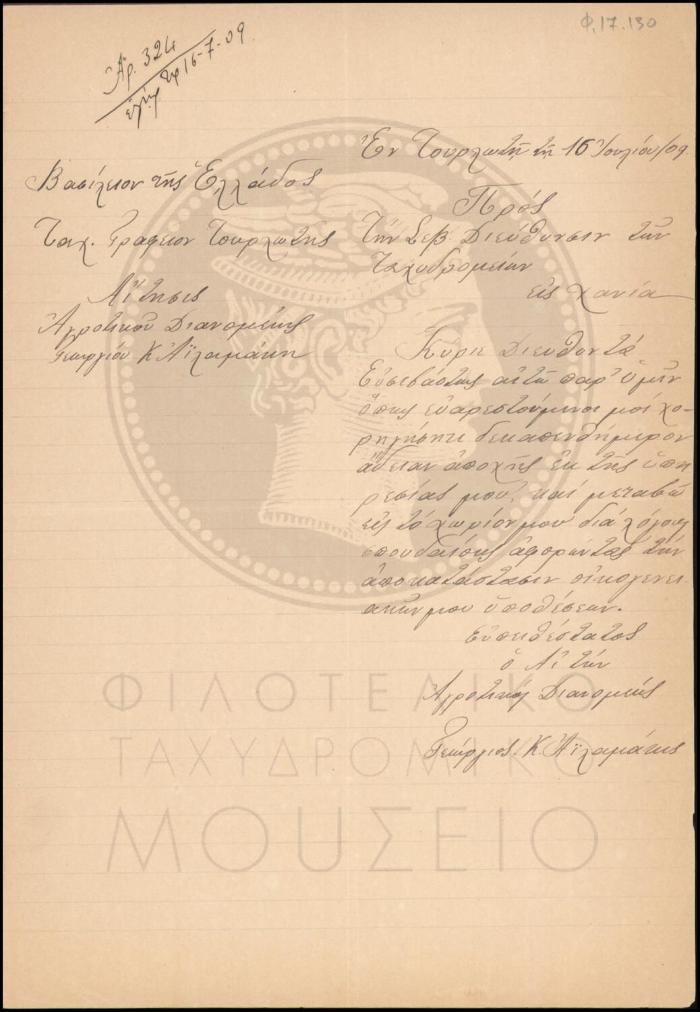 Φ.17.130
Ἀρ. 324
ἐλήφ τῇ 16-7-09.
Βασίλειον τῆς Ἑλλάδος
Ταχ. Γραφεῖον Τουρλωτῆς
Αἴτησις
Ἀγροτικοῦ Διανομέως
Γεωργίου Κ Ἀϊλαμάκη
Ἐν Τουρλωτῇ τῇ 16 Ἰουλίου/09
Πρός
Τὴν Σεβ Διεύθυνσιν τῶν
Ταχυδρομείων
εἰς Χανία
Κύριε Διευθυντά
Εὐσεβάστως αἰτῶ παρ' ὑμῶν
ὅπως εὐαρεστούμενοι μοὶ χο-
ρηγήσητε δεκαπενθήμερον
ἄδειαν ἀποχῆς ἐκ τῆς ὑπη
ρεσίας μου, καὶ μεταβῶ
εἰς τὸ χωρίον μου διὰ λόγους
σπουδαίους ἀφορώντας τὴν
ἀποκατάστασιν οἰκογενει
ακῶν μου ὑποθέσεων.
εὐπειθέστατος
ὁ Αἰτῶν
Ἀγροτικὸς Διανομεύς
Γεώργιος Κ Ἀϊλαμάκης
ΦΙΛΟΤΕΛΙΚΟ
ΤΑΧΥΔΡΟΜΙΚΟ
ΜΟΥΣΕΙΟ